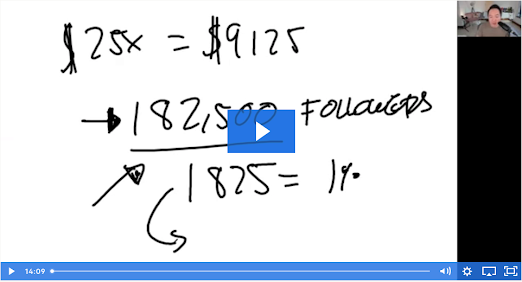 $25x = $9125
→ 182,500 FOLLOWERS
1825 = 1%
14:09